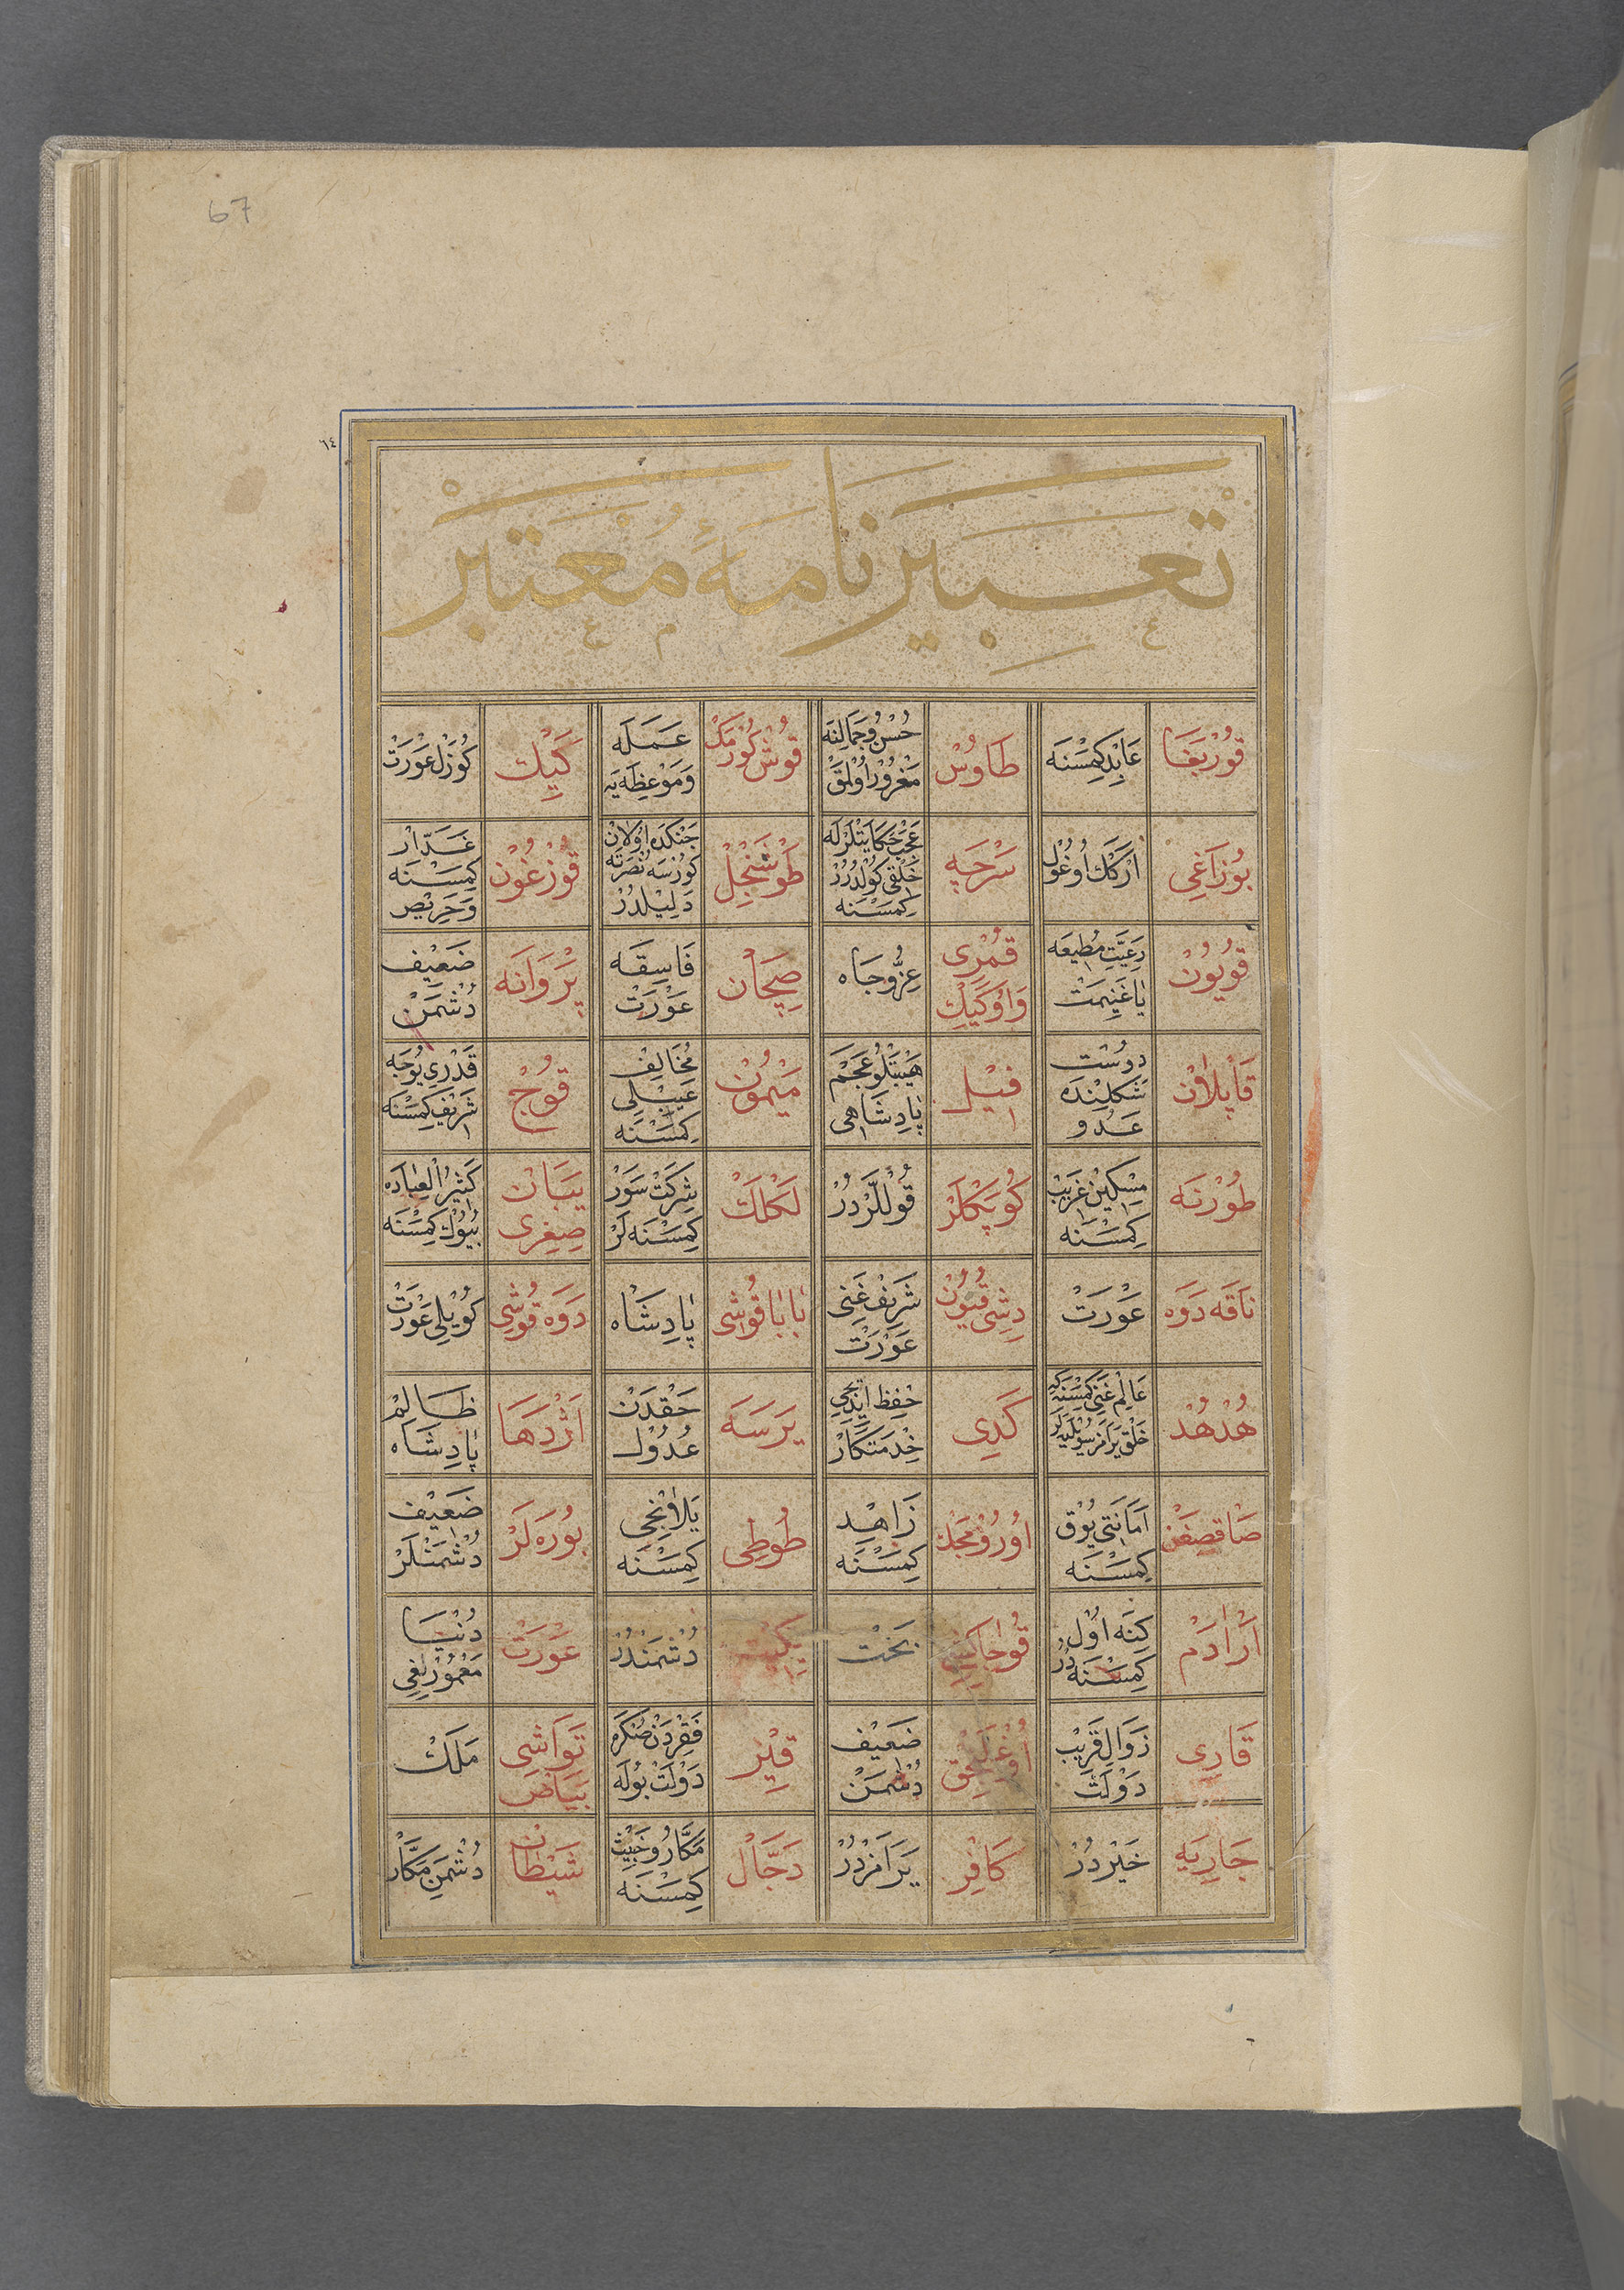 67
٦٤
تعبیرنامهٔ معتبر
قوربغا
عابد کمسنه
طاوس
حسن و جمالنه
مغرور اولمق
قوش کورمک
عمله
و موعظه‌یه
کیک
کوزل عورت
بوزاغی
ارکک اوغول
سرچه
عجب حکایتلرله
خلقی کولدرر
کمسنه
طوشنجل
جنکده اولان
کورسه نصرته
دلیلدر
قوزغون
غدار
کمسنه
و حریص
قویون
رعیت مطیعه
یا غنیمت
قمری
واوکیک
عز و جاه
صچان
فاسقه
عورت
پروانه
ضعیف
دشمن
قاپلان
دوست
شکلنده
عدو
فیل
هیبتلو عجم
پادشاهی
میمون
مخالف
عیبلی
کمسنه
قوج
قدری یوجه
شریف کمسنه
طورنه
مسکین غریب
کمسنه
کوپکلر
قوللردر
لکلک
شرکت سور
کمسنه لر
یبان
صغری
کثیر العباده
بیوک کمسنه
ناقه دوه
عورت
دشی قیون
شریف غنی
عورت
بابا قوشی
پادشاه
دوه قوشی
کویلی عورت
هدهد
عالم غنی کمسنه که
خلق یرامز سویلیه لر
کدی
حفظ ایدیجی
خدمتکار
یرسه
حقدن
عدول
اژدها
ظالم
پادشاه
صاقصغن
امانتی یوق
کمسنه
اورومجک
زاهد
کمسنه
طوطی
یلانجی
کمسنه
بوره لر
ضعیف
دشمنلر
ار ادم
کنه اول
کمسنه در
قوجا کشی
بخت
دشمندر
عورت
دنیا
معمورلغی
قاری
زوال قریب
دولت
اوغلنجق
ضعیف
دشمن
قیز
فقردن صکره
دولت بوله
تواشی
بیاض
ملک
جاریه
خیر در
کافر
یرامزدر
دجال
مکار و خبیث
کمسنه
شیطان
دشمن مکار